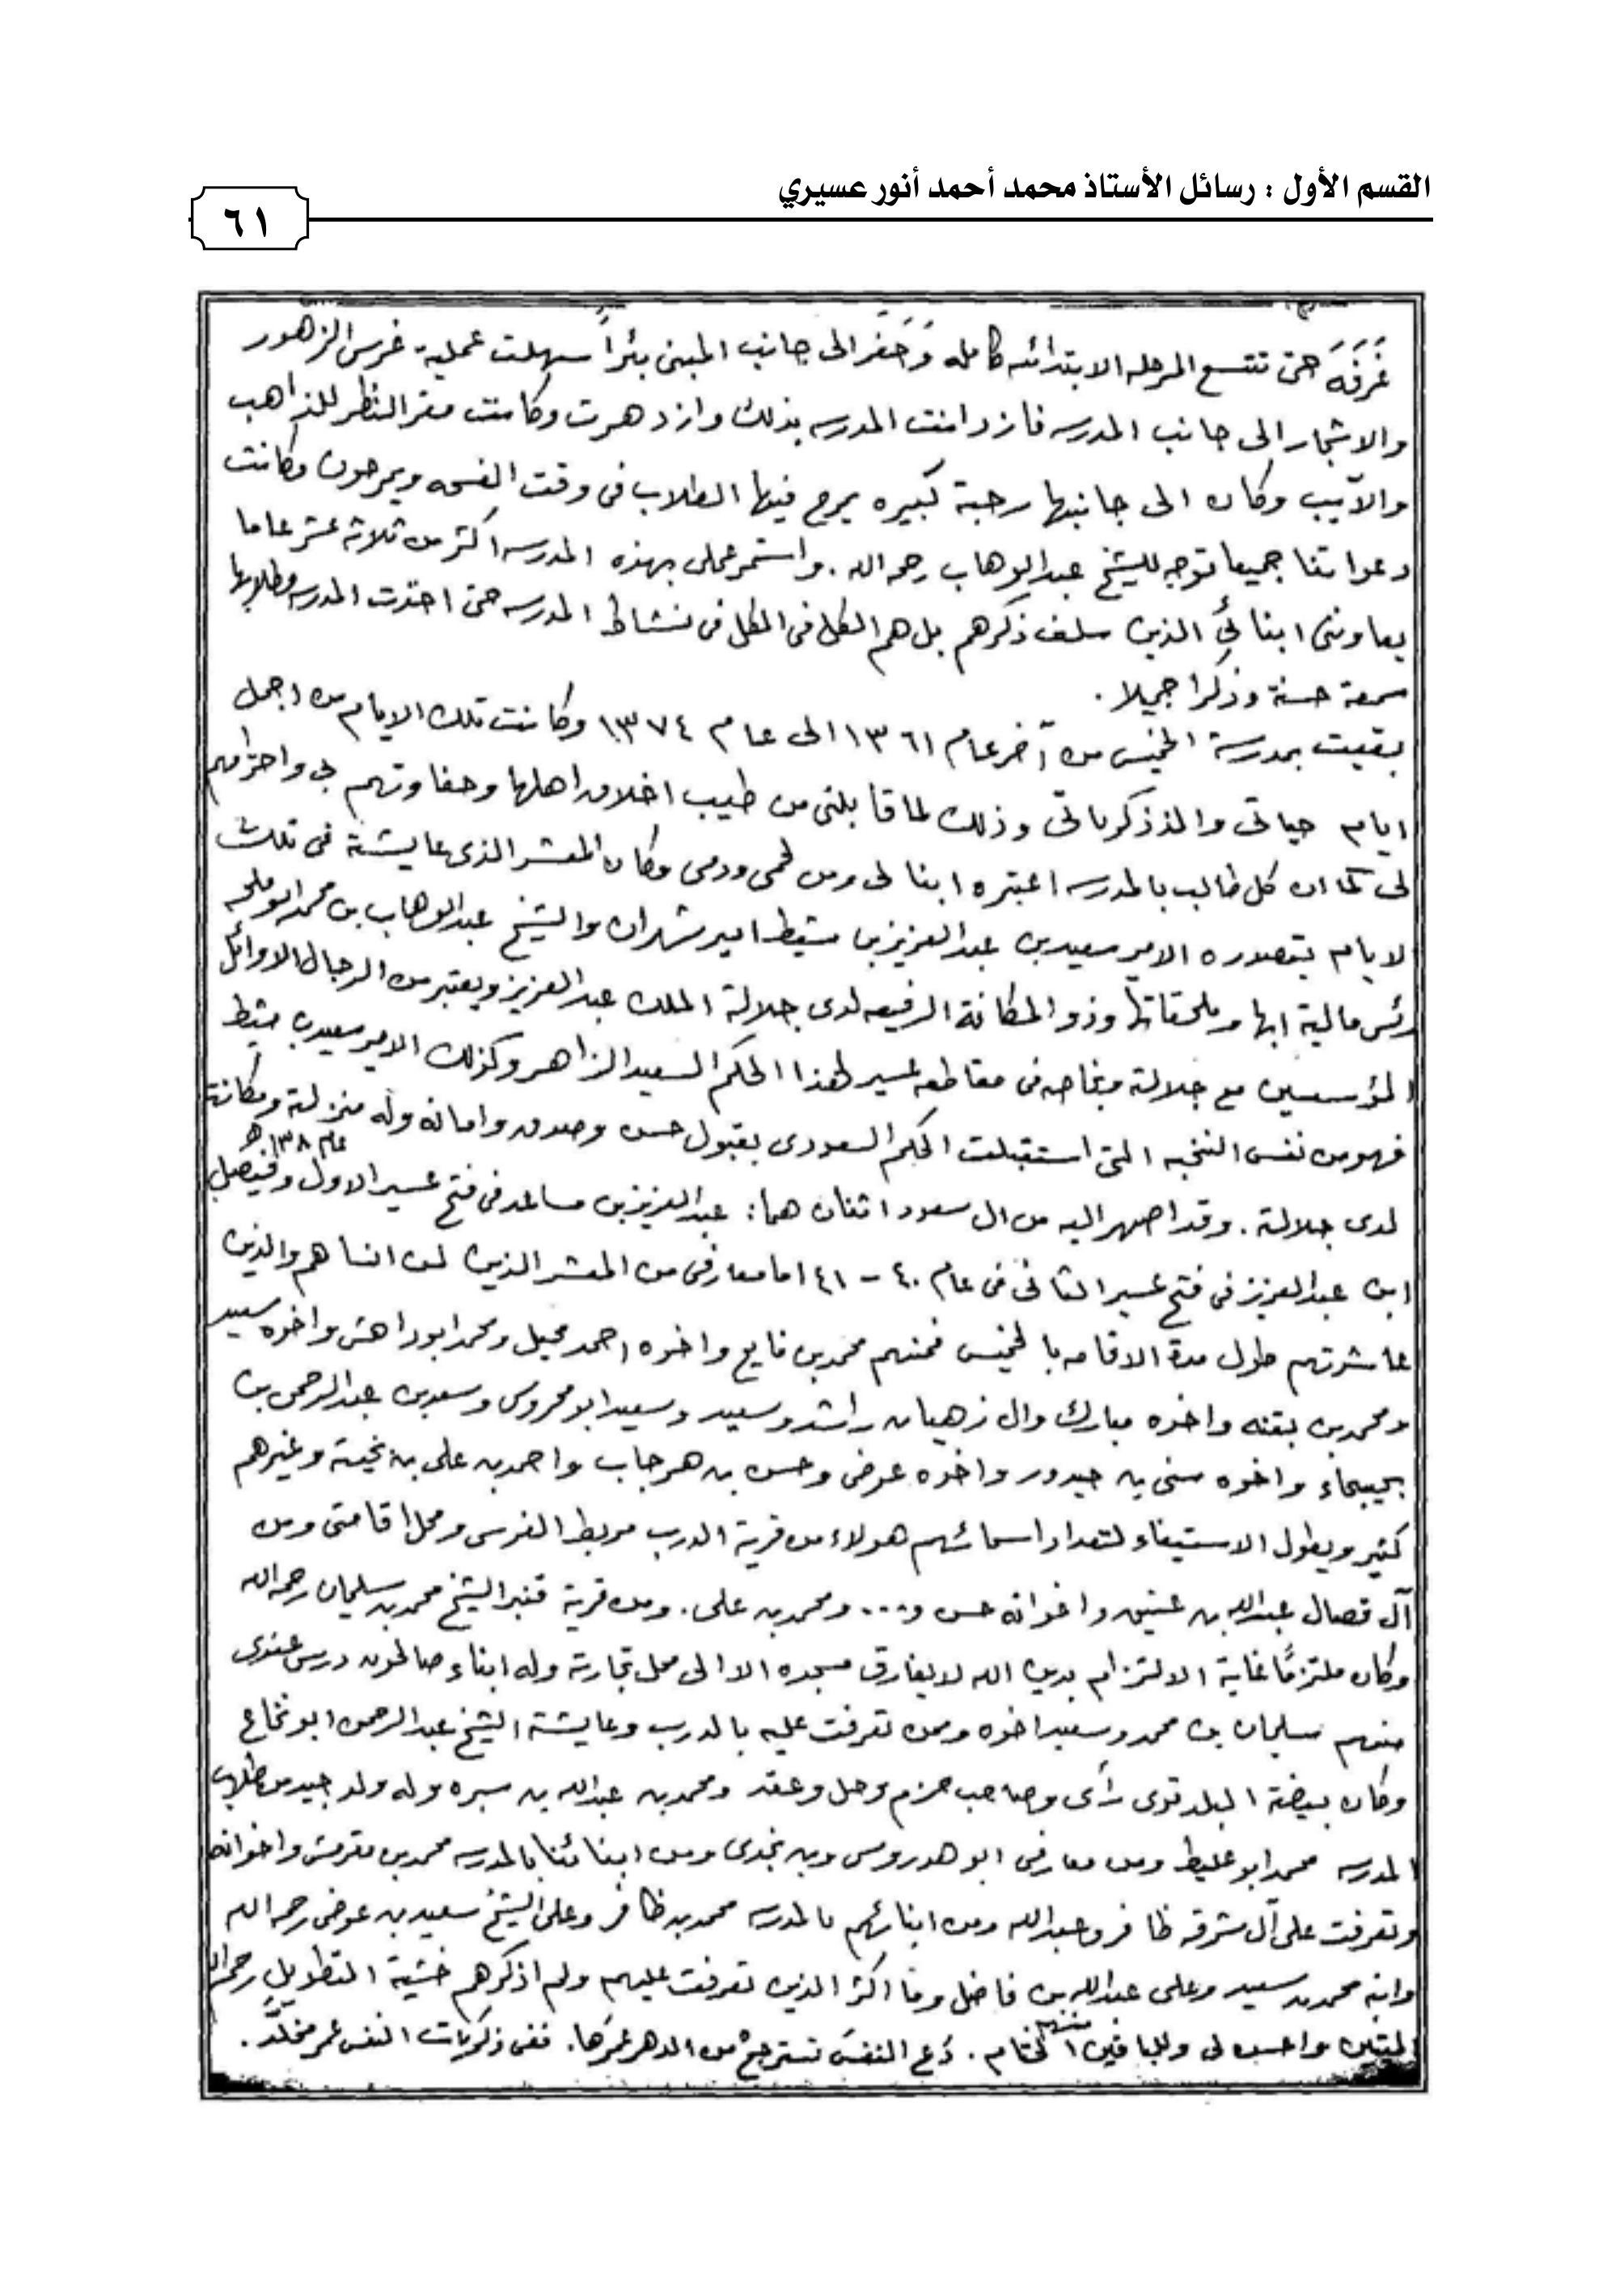 القسم الأول : رسائل الأستاذ محمد أحمد أنور عسيري
٦١
غرفة حتى تتسع المرحله الابتدائيه كامله وَحَفر الى جانب المبنى بئراً سهلت عملية غرس الزهور
والاشجار الى جانب المدرسه فازدانت المدرسه بذلك وازدهرت وكانت مقر النظر للذاهب
والآيب وكان الى جانبها رحبة كبيره يمرح فيها الطلاب فى وقت الفسحه ويمرحون وكانت
دعواتنا جميعا توجه للشيخ عبدالوهاب رحمه الله . واستمر عملى بهذه المدرسه اكثر من ثلاثة عشر عاما
يعاوننى ابنائي الذين سلف ذكرهم بل هم الكل فى الكل فى نشاط المدرسه حتى اخذت المدرسه وطلابها
سمعة حسنة وذكرا جميلا .
بقيت بمدرسة الخميس من آخر عام ١٣٦١ الى عام ١٣٧٤ وكانت تلك الايام من اجمل
ايام حياتى والذ ذكرياتى وذلك لما قابلنى من طيب اخلاق اهلها وحفاوتهم بى واحترامهم
لى كما ان كل طالب بالمدرسه اعتبره ابنا لى ومن لحمى ودمى وكان المعشر الذى عايشته فى تلك
الايام يتصدره الامير سعيد بن عبدالعزيز بن مشيط امير شهران والشيخ عبدالوهاب بن محمد ابو ملحه
رئس مالية ابها وملحقاتها وذو المكانة الرفيعه لدى جلالة الملك عبدالعزيز ويعتبر من الرجال الاوائل
المؤسسين مع جلالته وبخاصه فى مقاطعه عسير لهذا الحكم السعيد الزاهر وكذلك الامير سعيد بن مشيط
فهو من نفس النخبه التى استقبلت الحكم السعودى بقبول حسن وصدق وامانه وله منزلة ومكانة
لدى جلالته . وقد اصهر اليه من ال سعود اثنان هما : عبدالعزيز بن مساعد فى فتح عسير الاول عام ١٣٨ هـ وفيصل
ابن عبدالعزيز فى فتح عسير الثانى فى عام ٤٠ - ٤١ اما معارفى من المعشر الذين لن انساهم والذين
عاشرتهم طول مدة الاقامه بالخميس فمنهم محمد بن فايع واخوه احمد محيل ومحمد ابو داهش واخوه سعيد
ومحمد بن بقنه واخوه مبارك وال زهيان راشد وسعيد وسعيد ابو محروس وسعد بن عبدالرحمن بن
واخوه سنى بن حيدور واخوه عوض وحسن بن هرجاب واحمد بن على بن نحيته وغيرهم
كثير ويطول الاستيفاء لتعداد اسمائهم هولاء من قرية الدرب مربط الفرس ومحل اقامتى ومن
آل قصال عبدالله بن عتيق واخوانه حسن و... ومحمد بن على . ومن قرية قنبر الشيخ محمد بن سليمان رحمه الله
وكان ملتزمًا غاية الالتزام بدين الله لا يفارق مسجده الا الى محل تجارته وله ابناء صالحون درس عندى
منهم سليمان بن محمد وسعيد اخوه وممن تعرفت عليه بالدرب وعايشته الشيخ عبدالرحمن ابو نخاع
وكان بيضة البلد قوى رأى وصاحب حزم وحل وعقد ومحمد بن عبدالله بن سبره وله ولد جيد من طلاب
المدرسه محمد ابو غليط ومن معارفى ابو هدروس وبن نجدى ومن ابنائنا بالمدرسه محمد بن مقرمش واخوانه
وتعرفت على آل مشرقه ظافر وعبدالله ومن ابنائهم بالمدرسه محمد بن ظافر وعلى الشيخ سعيد بن عوض رحمه الله
وابنه محمد بن سعيد وعلى عبدالله بن فاضل وما اكثر الذين تعرفت عليهم ولم اذكرهم خشية التطويل رحم الله
الميتين منهم واحسن لى وللباقين الختام . دَع النفسَ تسترجعْ من الدهر عمرَها . ففى ذكريات النفس عمر مخلّد .